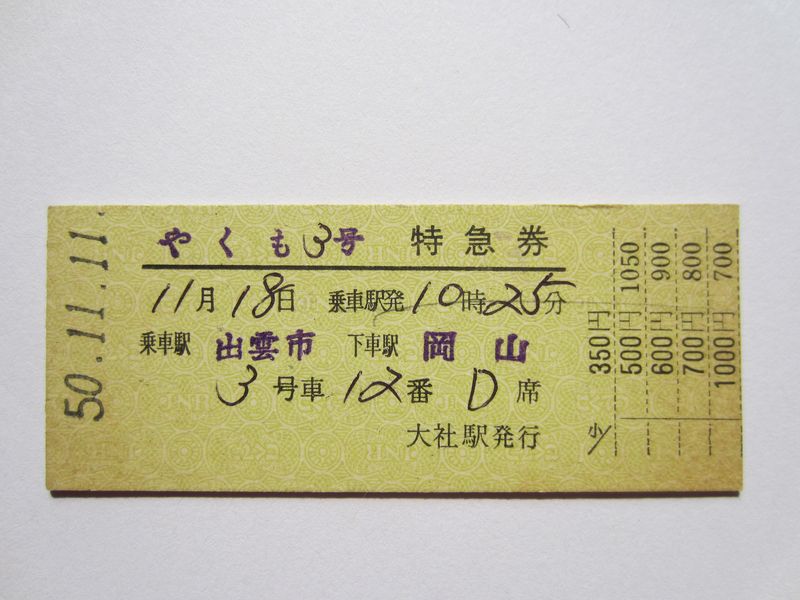 50.11.11.
やくも3号 特急券
11月18日 乗車駅発10時25分
乗車駅 出雲市 下車駅 岡山
3号車12番D席
大社駅発行
小
350円
500円 1050
600円 900
700円 800
1000円 700